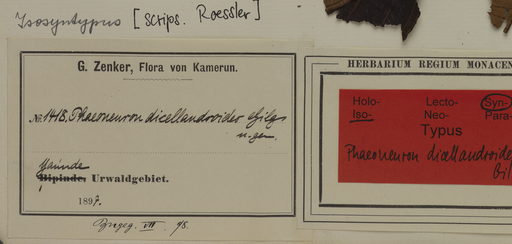 Isosyntypus [scrips. Roessler]
G. Zenker, Flora von Kamerun.
No. 1418. Phaeoneuron dicellandroides Gilg
n. gen.
Yaúnde
Bipinde, Urwaldgebiet.
1897.
VII. 98.
HERBARIUM REGIUM MONACEN
Holo- Lecto- Syn-
Iso- Neo- Para-
Typus
Phaeoneuron dicellandroide
Gil